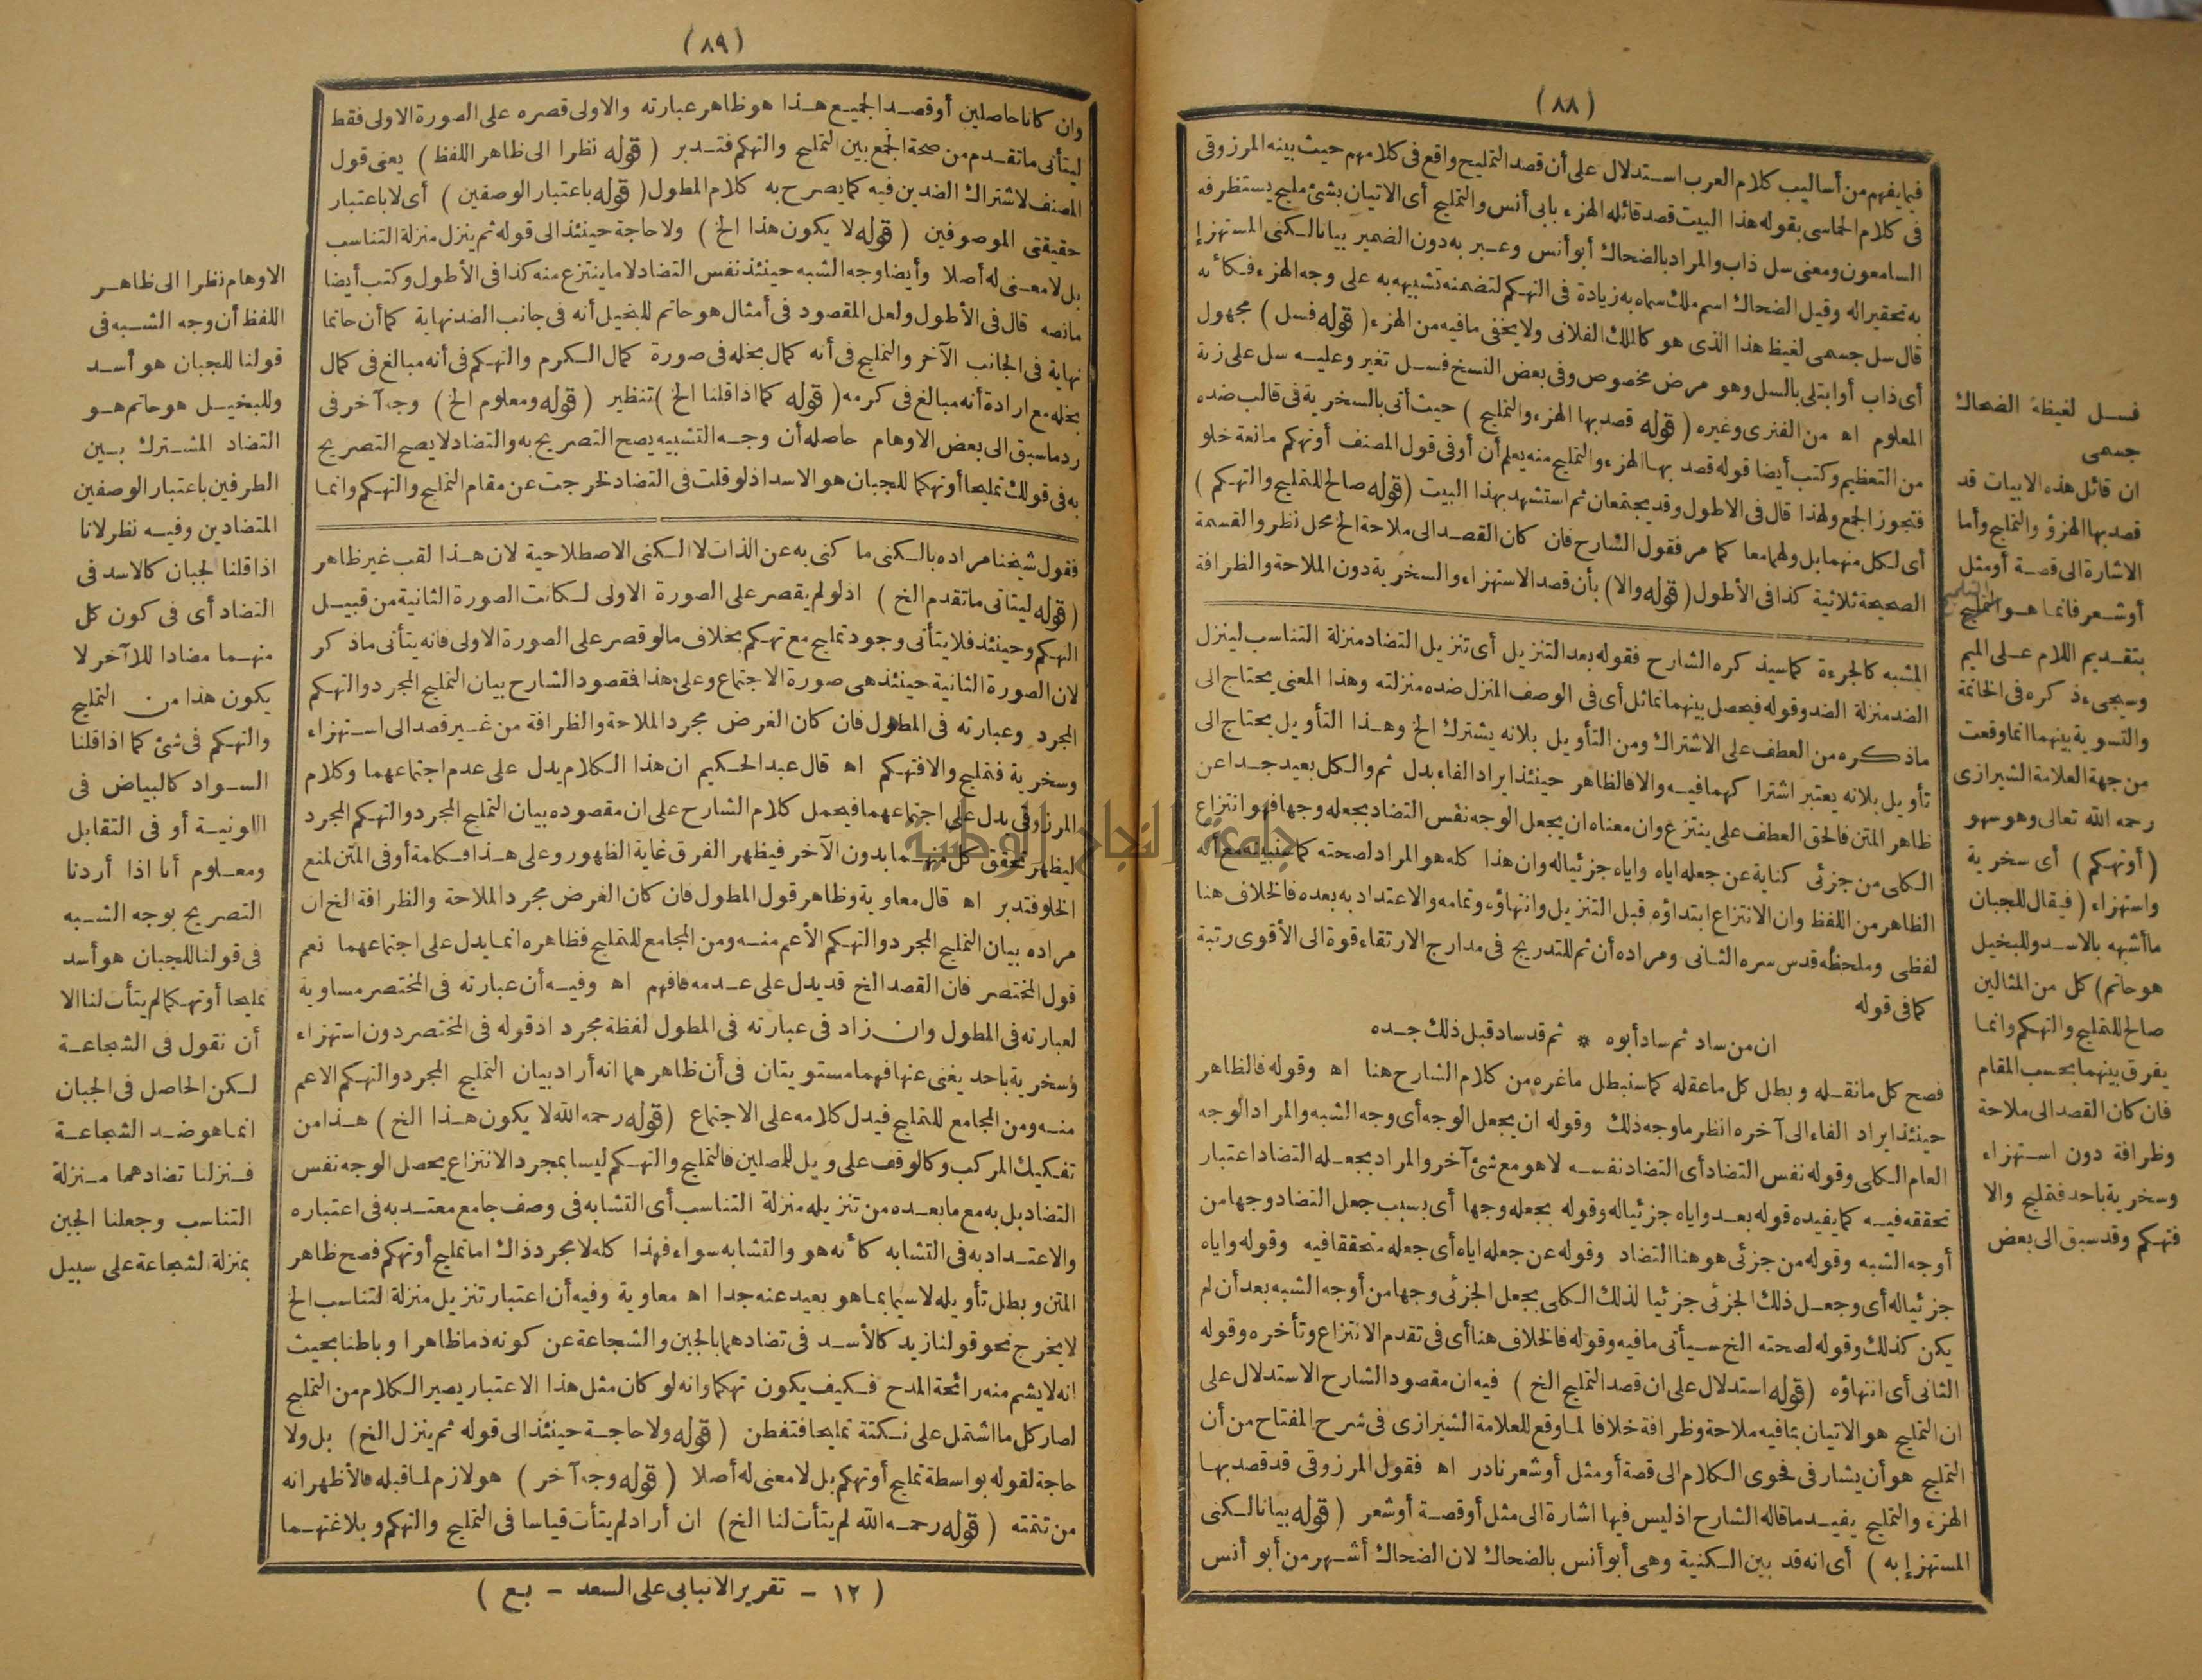 (٨٨)
فيما يفهم من أساليب كلام العرب استدلال على أن قصد التمليح واقع فى كلامهم حيث بينه المرزوقى
فى كلام الحماسى بقوله هذا البيت قصد قائله الهزء بابى أنس والتمليح أى الاتيان بشئ مليح يستظرفه
السامعون ومعنى سل ذاب والمراد بالضحاك أبو أنس وعبر به دون الضمير بيانا لكنى المستهزإ
به تحقيرا له وقيل الضحاك اسم ملك سماه به زيادة فى التهكم لتضمنه تشبيهه به على وجه الهزء فكأنه
قال سل جسمى لغيظ هذا الذى هو كالملك الفلانى ولا يخفى ما فيه من الهزء (قوله فسل) مجهول
أى ذاب أو ابتلى بالسل وهو مرض مخصوص وفى بعض النسخ فسل تغير وعليه سل على زنة
المعلوم اه من الفنرى وغيره (قوله قصد بها الهزء والتمليح) حيث أتى بالسخرية فى قالب ضده
من التعظيم وكتب أيضا قوله قصد بها الهزء والتمليح منه يعلم أن أو فى قول المصنف أو تهكم مانعة خلو
فتجوز الجمع ولهذا قال فى الاطول وقد يجتمعان ثم استشهد بهذا البيت (قوله صالح للتمليح والتهكم)
أى لكل منهما بل ولهما معا كما مر فقول الشارح فان كان القصد الى ملاحة الخ محل نظر والقسمة
الصحيحة ثلاثية كذا فى الأطول (قوله والا) بأن قصد الاستهزاء والسخرية دون الملاحة والظرافة
المشبه كالجرءة كما سيذكره الشارح فقوله بعد التنزيل أى تنزيل التضاد منزلة التناسب لينزل
الضد منزلة الضد وقوله فيحصل بينهما تماثل أى فى الوصف المنزل ضده منزلته وهذا المعنى يحتاج الى
ماذكره من العطف على الاشتراك ومن التأويل بلانه يشترك الخ وهذا التأويل يحتاج الى
تأويل بلانه يعتبر اشتراكهما فيه والا فالظاهر حينئذ ايراد الفاء بدل ثم والكل بعيد جدا عن
ظاهر المتن فالحق العطف على ينتزع وان معناه ان يجعل الوجه نفس التضاد بجعله وجها فهو انتزاع
الكلى من جزئى كناية عن جعله اياه واياه جزئيا له وان هذا كله هو المراد لصحته كما مع أنه
الظاهر من اللفظ وان الانتزاع ابتداؤه قبل التنزيل وانتهاؤه وتمامه والاعتداد به بعده فالخلاف هنا
لفظى وملحظه قدس سره الثانى ومراده أن ثم للتدريج فى مدارج الارتقاء قوة الى الأقوى رتبة
كما فى قوله
ان من ساد ثم ساد أبوه * ثم قد ساد قبل ذلك جده
فصح كل مانقله وبطل كل ماعقله كما سنبطل ماغره من كلام الشارح هنا اه وقوله فالظاهر
حينئذ ايراد الفاء الى آخره انظر ماوجه ذلك وقوله ان يجعل الوجه أى وجه الشبه والمراد الوجه
العام الكلى وقوله نفس التضاد أى التضاد نفسه لا هو مع شئ آخر والمراد بجعله التضاد اعتبار
تحققه فيه كما يفيده قوله بعد واياه جزئيا له وقوله بجعله وجها أى بسبب جعل التضاد وجها من
أوجه الشبه وقوله من جزئى هو هنا التضاد وقوله عن جعله اياه أى جعله متحققا فيه وقوله واياه
جزئيا له أى وجعل ذلك الجزئى جزئيا لذلك الكلى بجعل الجزئى وجها من أوجه الشبه بعد أن لم
يكن كذلك وقوله لصحته الخ سيأتى ما فيه وقوله فالخلاف هنا أى فى تقدم الانتزاع وتأخره وقوله
الثانى أى انتهاؤه (قوله استدلال على ان قصد التمليح الخ) فيه ان مقصود الشارح الاستدلال على
ان التمليح هو الاتيان بما فيه ملاحة وظرافة خلافا لما وقع للعلامة الشيرازى فى شرح المفتاح من أن
التمليح هو أن يشار فى فحوى الكلام الى قصة أو مثل أو شعر نادر اه فقول المرزوقى قد قصد بها
الهزء والتمليح يفيد ماقاله الشارح اذ ليس فيها اشارة الى مثل أو قصة أو شعر (قوله بيانا لكنى
المستهزإ به) أى انه قد بين الكنية وهى أبو أنس بالضحاك لان الضحاك أشهر من أبو أنس
فسل لغيظة الضحاك
جسمى
ان قائل هذه الابيات قد
قصد بها الهزؤ والتمليح وأما
الاشارة الى قصة أو مثل
أو شعر فانما هو التمليح
بتقديم اللام على الميم
وسيجىء ذكره فى الخاتمة
والتسوية بينهما انما وقعت
من جهة العلامة الشيرازى
رحمه الله تعالى وهو سهو
(أو تهكم) أى سخرية
واستهزاء (فيقال للجبان
ما أشبهه بالاسد وللبخيل
هو حاتم) كل من المثالين
صالح للتمليح والتهكم وانما
يفرق بينهما بحسب المقام
فان كان القصد الى ملاحة
وظرافة دون استهزاء
وسخرية باحد فتمليح والا
فتهكم وقد سبق الى بعض
(٨٩)
وان كانا حاصلين أو قصد الجميع هذا هو ظاهر عبارته والاولى قصره على الصورة الاولى فقط
ليتأتى ماتقدم من صحة الجمع بين التمليح والتهكم فتدبر (قوله نظرا الى ظاهر اللفظ) يعنى قول
المصنف لاشتراك الضدين فيه كما يصرح به كلام المطول (قوله باعتبار الوصفين) أى لا باعتبار
حقيقتى الموصوفين (قوله لا يكون هذا الخ) ولا حاجة حينئذ الى قوله ثم ينزل منزلة التناسب
بل لا معنى له أصلا وأيضا وجه الشبه حينئذ نفس التضاد لا ما ينتزع منه كذا فى الأطول وكتب أيضا
مانصه قال فى الأطول ولعل المقصود فى أمثال هو حاتم للبخيل أنه فى جانب الضد نهاية كما أن حاتما
نهاية فى الجانب الآخر والتمليح فى أنه كمال بخله فى صورة كمال الكرم والتهكم فى أنه مبالغ فى كمال
بخله مع ارادة أنه مبالغ فى كرمه (قوله كما اذا قلنا الخ) تنظير (قوله ومعلوم الخ) وجه آخر فى
رد ماسبق الى بعض الاوهام حاصله أن وجه التشبيه يصح التصريح به والتضاد لا يصح التصريح
به فى قولك تمليحا أو تهكما للجبان هو الاسد اذ لو قلت فى التضاد لخرجت عن مقام التمليح والتهكم وانما
فقول شيخنا مراده بالكنى ما كنى به عن الذات لا الكنى الاصطلاحية لان هذا لقب غير ظاهر
(قوله ليتأتى ماتقدم الخ) اذ لو لم يقصر على الصورة الاولى لكانت الصورة الثانية من قبيل
التهكم وحينئذ فلا يتأتى وجود تمليح مع تهكم بخلاف مالو قصر على الصورة الاولى فانه يتأتى ماذكر
لان الصورة الثانية حينئذ هى صورة الاجتماع وعلى هذا فقصود الشارح بيان التمليح المجرد والتهكم
المجرد وعبارته فى المطول فان كان الغرض مجرد الملاحة والظرافة من غير قصد الى استهزاء
وسخرية فتمليح والا فتهكم اه قال عبد الحكيم ان هذا الكلام يدل على عدم اجتماعهما وكلام
المرزوقى يدل على اجتماعهما فيحمل كلام الشارح على ان مقصوده بيان التمليح المجرد والتهكم المجرد
ليظهر تحقق كل منهما بدون الآخر فيظهر الفرق غاية الظهور وعلى هذا فكلمة أو فى المتن لمنع
الخلو فتدبر اه قال معاوية وظاهر قول المطول فان كان الغرض مجرد الملاحة والظرافة الخ ان
مراده بيان التمليح المجرد والتهكم الأعم منه ومن المجامع للتمليح فظاهره انما يدل على اجتماعهما نعم
قول المختصر فان القصد الخ قد يدل على عدمه فافهم اه وفيه أن عبارته فى المختصر مساوية
لعبارته فى المطول وان زاد فى عبارته فى المطول لفظة مجرد اذ قوله فى المختصر دون استهزاء
وسخرية باحد يغنى عنها فهما مستويتان فى أن ظاهرهما انه أراد بيان التمليح المجرد والتهكم الاعم
منه ومن المجامع للتمليح فيدل كلامه على الاجتماع (قوله رحمه الله لا يكون هذا الخ) هذا من
تفكيك المركب وكالوقف على ويل للمصلين فالتمليح والتهكم ليسا بمجرد الانتزاع يحصل الوجه نفس
التضاد بل به مع مابعده من تنزيله منزلة التناسب أى التشابه فى وصف جامع معتد به فى اعتباره
والاعتداد به فى التشابه كأنه هو والتشابه سواء فهذا كله لا مجرد ذاك اما تمليح أو تهكم فصح ظاهر
المتن وبطل تأويله لاسيما بما هو بعيد عنه جدا اه معاوية وفيه أن اعتبار تنزيل منزلة التناسب الخ
لا يخرج نحو قولنا زيد كالأسد فى تضادهما بالجبن والشجاعة عن كونه ذما ظاهرا وباطنا بحيث
انه لا يشم منه رائحة المدح فكيف يكون تهكما وانه لو كان مثل هذا الاعتبار يصير الكلام من التمليح
لصار كل ما اشتمل على نكتة تمليحا فتفطن (قوله ولا حاجة حينئذ الى قوله ثم ينزل الخ) بل ولا
حاجة لقوله بواسطة تمليح أو تهكم بل لا معنى له أصلا (قوله وجه آخر) هو لازم لما قبله فالأظهر انه
من تتمته (قوله رحمه الله لم يتأت لنا الخ) ان أراد لم يتأت قياسا فى التمليح والتهكم وبلاغتهما
الاوهام نظرا الى ظاهر
اللفظ أن وجه الشبه فى
قولنا للجبان هو أسد
وللبخيل هو حاتم هو
التضاد المشترك بين
الطرفين باعتبار الوصفين
المتضادين وفيه نظر لانا
اذا قلنا لجبان كالاسد فى
التضاد أى فى كون كل
منهما مضادا للآخر لا
يكون هذا من التمليح
والتهكم فى شئ كما اذا قلنا
السواد كالبياض فى
اللونية أو فى التقابل
ومعلوم أنا اذا أردنا
التصريح بوجه الشبه
فى قولنا للجبان هو أسد
تمليحا أو تهكما لم يتأت لنا الا
أن نقول فى الشجاعة
لكن الحاصل فى الجبان
انما هو ضد الشجاعة
فنزلنا تضادهما منزلة
التناسب وجعلنا الجبن
بمنزلة الشجاعة على سبيل
(١٢ - تقرير الانبابى على السعد - بع)
جامعة النجاح الوطنية